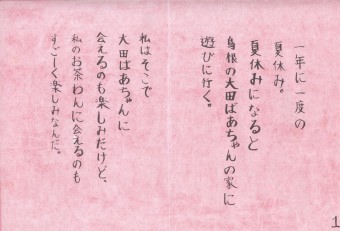 一年に一度の
夏休み。
夏休みになると
島根の大田ばあちゃんの家に
遊びに行く。
私はそこで
大田ばあちゃんに
会えるのも楽しみだけど、
私のお茶わんに会えるのも
すごーく楽しみなんだ。
1